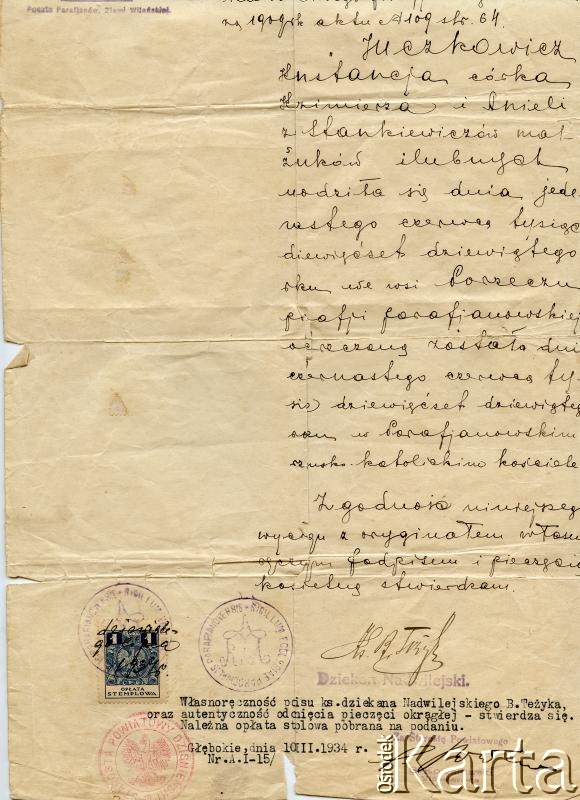 Poczta Parafjanów, Ziemi Wileńskiej.
za 1909 rok aktu № 109 str. 64.
Juczkowicz
Konstancja córka
Kazimierza i Anieli
z Stankiewiczów mał-
żonków ślubnych
urodziła się dnia jede-
nastego czerwca tysiąc
dziewięćset dziewiątego
roku we wsi Porzeczu
parafji parafjanowskiej
ochrzczona została dnia
czternastego czerwca ty-
siąc dziewięćset dziewiąteg
roku w Parafjanowskim
rzymsko-katolickim kościele
Zgodność niniejszego
wyciągu z oryginałem własno-
ręcznym podpisem i pieczęcią
kościelną stwierdzam.
1 1
OPŁATA
STEMPLOWA
Ks. B. Tężyk
Dziekan Nadwilejski.
Własnoręczność pcisu ks.dziekana Nadwilejskiego B.Teżyka,
oraz autentyczność odcnięcia pieczęci okrągłej - stwierdza się.
Należna opłata stplowa pobrana na podaniu.
Głębokie, dnia 10III.1934 r.
Nr.A.I-15/
Ośrodek
Karta